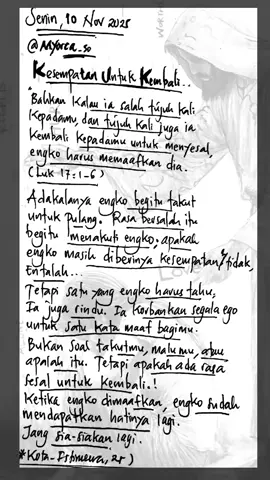 Senin, 10 Nov 2025
Kesempatan Untuk Kembali..
"Bahkan kalau ia salah tujuh kali
kepadamu, dan tujuh kali juga ia
kembali kepadamu untuk menyesal,
engko harus memaafkan dia.
(Luk 17:1-6)
Adakalanya engko begitu takut
untuk pulang. Rasa bersalah itu
begitu menakuti engko, apakah
engko masih diberinya kesempatan/tidak,
Entalah...
Tetapi satu yang engko harus tahu,
Ia juga rindu. Ia korbankan segala ego
untuk satu kata maaf bagimu.
Bukan soal takutmu, malumu, atau
apalah itu. Tetapi apakah ada rasa
sesal untuk kembali.!
Ketika engko dimaafkan, engko sudah
mendapatkan hatinya lagi.
Jang sia-siakan lagi.